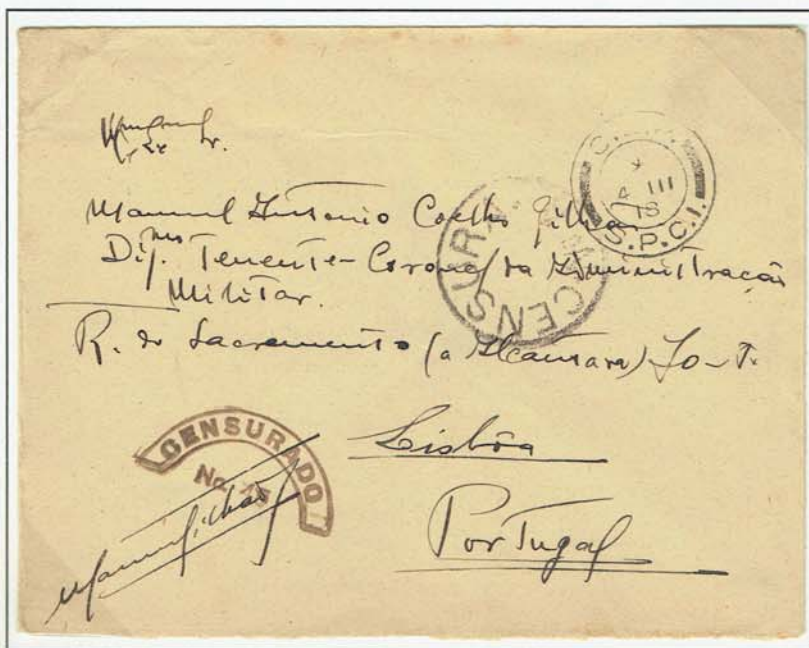 Manuel Antonio Coelho Gilhão
Dig.mo Tenente-Coronel da Administração
Militar.
R. do Sacramento (a Alcantara) 70-
Lisbôa
Portugal
CENSURA
4 III
18
S.P.C.I.
CENSURADO
No.